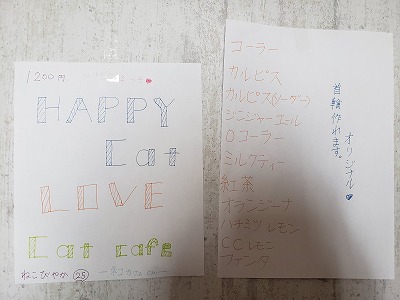 1200円
HAPPY
Cat
LOVE
Cat cafe
ねこびやか 25
コーラー
カルピス
カルピス(ソーダー)
ジンジャーエール
0コーラー
ミルクティー
紅茶
オランジーナ
ハチミツレモン
CCレモン
ファンタ
オリジナル
首輪作れます。